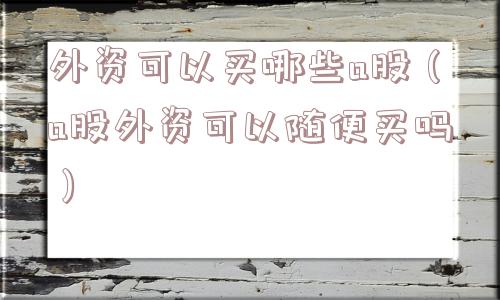 外资可以买哪些a股（
a股外资可以随便买吗
）